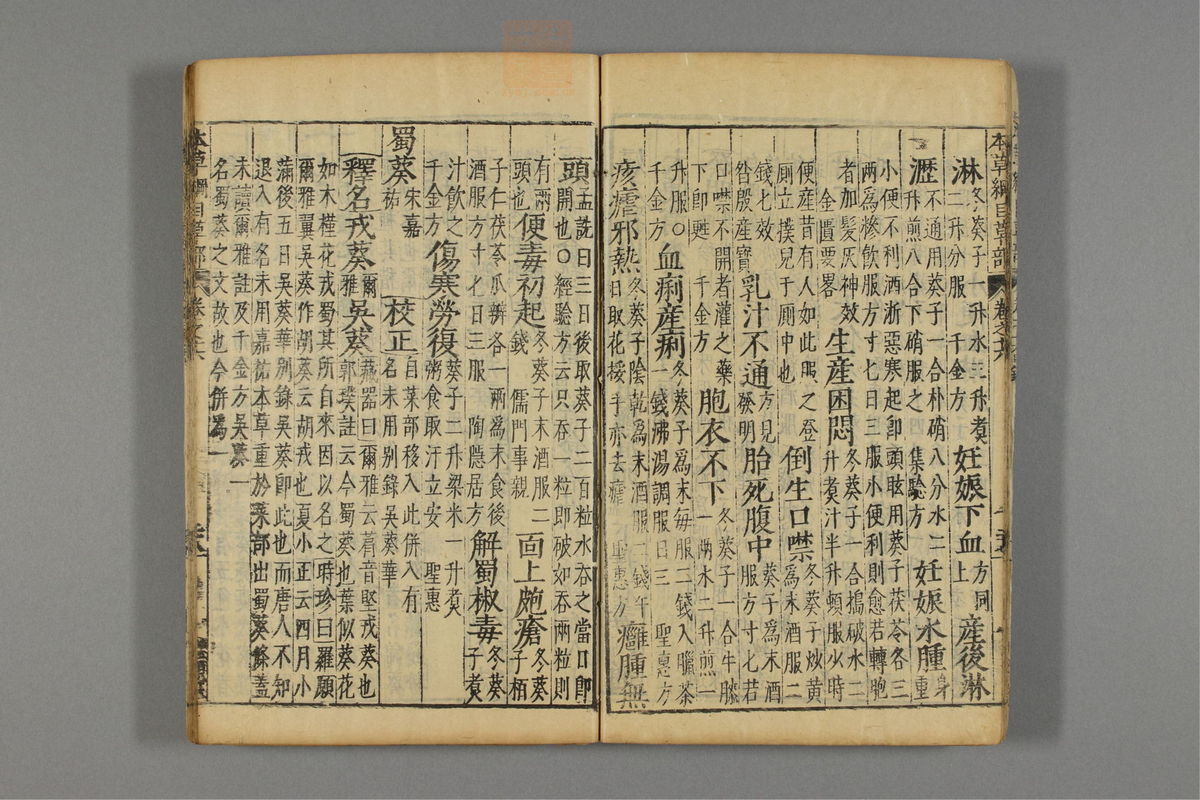 本草綱目草部 卷之十六
淋冬葵子一升水三升煮二升分服 千金方 妊娠下血方同上 產後淋
瀝不通用葵子一合朴硝八分水二升煎八合下硝服之 集驗方 妊娠水腫身重
小便不利洒淅惡寒起即頭眩用葵子茯苓各三兩爲糝飲服方寸七日三服小便利則愈若轉胞
者加髮灰神效 金匱要畧 生產困悶冬葵子一合擣破水二升煮汁半升頓服少時
便產昔有人如此服之登廁立撲兒于廁中也 倒生口噤冬葵子炒黃爲末酒服二
錢七效 昝殷產寶 乳汁不通方見發明 胎死腹中葵子爲末酒服方寸七若
口噤不開者灌之藥下即甦 千金方 胞衣不下冬葵子一合牛膝一兩木二升煎一
升服○千金方 血痢產痢冬葵子爲末每服二錢入臘茶一錢沸湯調服日三 聖惠方
痎瘧邪熱冬葵子陰乾爲末酒服二錢午日取花挼手亦去瘧 聖惠方 癰腫無
頭孟詵曰三日後取葵子二百粒水吞之當日即開也○經驗方云只吞一粒即破如吞兩粒則
有兩頭也 便毒初起冬葵子末酒服二錢 儒門事親 面上皰瘡冬葵子栢
子仁茯苓瓜瓣各一兩爲末食後酒服方寸七日三服 陶隱居方 解蜀椒毒冬葵子煮
汁飲之千金方 傷寒勞復葵子二升梁米一升煮粥食取汗立安 聖惠
蜀葵宋嘉祐 校正自菜部移入此併入有名未用別錄吳葵華
釋名戎葵爾雅吳葵藏器曰爾雅云菺音堅戎葵也郭璞註云今蜀葵也葉似葵花
如木槿花戎蜀其所自來因以名之時珍曰羅願爾雅翼吳葵作胡葵云胡戎也夏小正云四月小
滿後五日吳葵華別錄吳葵即此也而唐人不知退入有名未用嘉祐本草重於菜部出蜀葵條蓋
未讀爾雅註及千金方吳葵一名蜀葵之文故也今併爲一
本草綱目草部 卷之十六